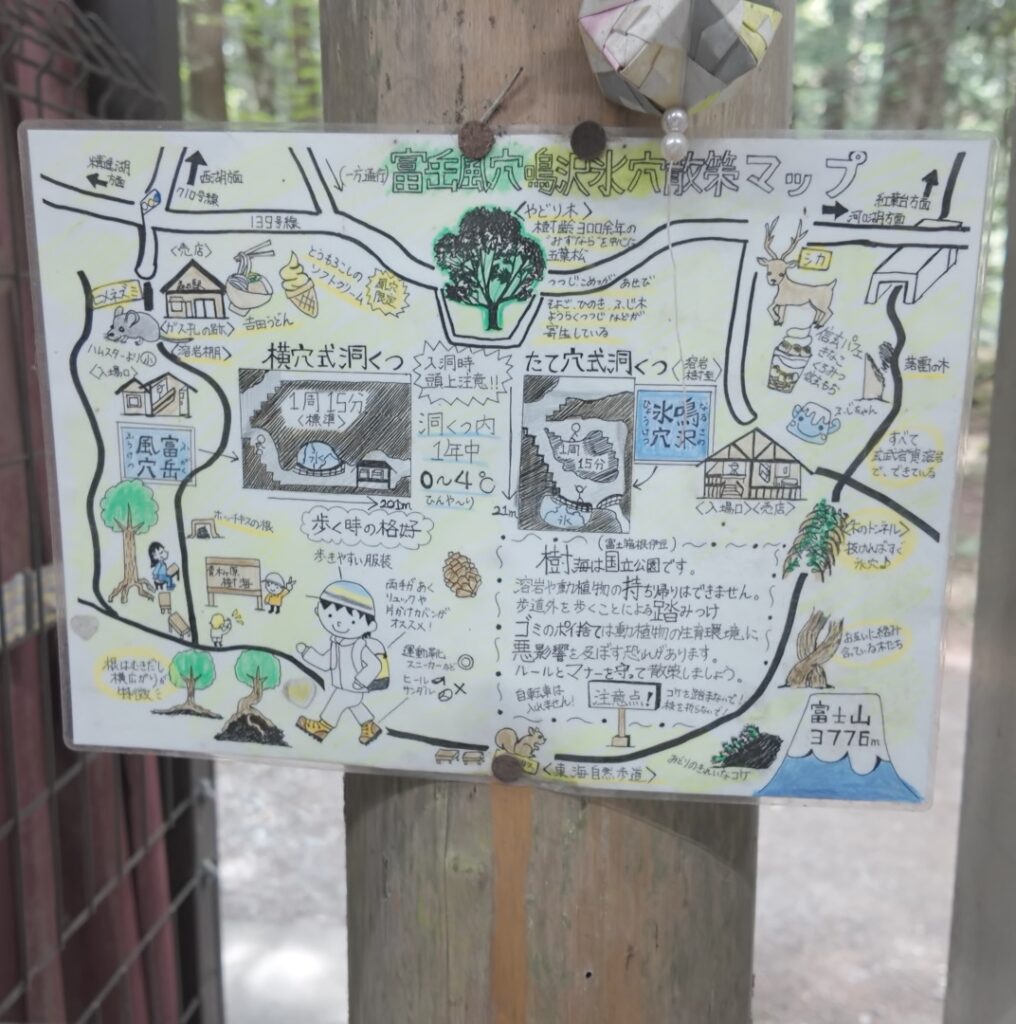 富岳風穴 鳴沢氷穴散策マップ
精進湖
方面
西湖方面
710号線
一方通行
139号線
紅葉台方面
河口湖方面
<やどり木>
樹齢300余年の
"みずなら"を中心に
五葉松
つつじ こめつが あせび
そよご、ひのき、ふじ木
ようらくつつじ などが
寄生している
<売店>
とうもろこしの
ソフトクリーム
風穴
限定
吉田うどん
ヒメネズミ
ハムスターより小
<ガス孔の跡>
<溶岩棚>
<入場口>
富岳
風穴
ふうけつ
横穴式洞くつ
1周15分
<標準>
氷
201m
入洞時
頭上注意!!
洞くつ内
1年中
0～4℃
ひんや～り
たて穴式洞くつ
溶岩
樹型
1周
15分
氷
21m
鳴沢
氷穴
なるさわ
ひょうけつ
<入場口><売店>
シカ
信玄パフェ
きなこ
くろみつ
ふじちゃん
落雷の木
すべて
玄武岩質溶岩
で、できている
木のトンネル
抜ければすぐ
氷穴♪
お互いに絡み
合っている木たち
ホッチキスの根
青木ヶ原
樹海
根はむきだし
横広がりが
特徴
歩く時の格好
歩きやすい服装
両手があく
リュックや
片かけカバンが
オススメ!
運動靴
スニーカーなど ◎
ヒール
サンダル ×
(富士箱根伊豆)
樹海は国立公園です。
溶岩や動植物の持ち帰りはできません。
歩道外を歩くことによる踏みつけ
ゴミのポイ捨ては動植物の生育環境に
悪影響を及ぼす恐れがあります。
ルールとマナーを守って散策しましょう。
自転車は
入れません!
注意点!
コケを踏まないで!
枝を折らないで!
<東海自然歩道>
みどりのきれいなコケ
富士山
3776m